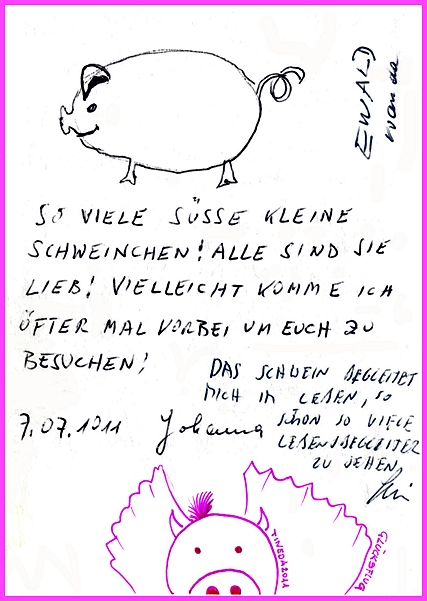 EWALD
Wanda
SO VIELE SÜSSE KLEINE
SCHWEINCHEN! ALLE SIND SIE
LIEB! VIELLEICHT KOMME ICH
ÖFTER MAL VORBEI UM EUCH ZU
BESUCHEN!
DAS SCHWEIN BEGLEITET
MICH IM LEBEN, SO
SCHÖN SO VIELE
LEBENSBEGLEITER
ZU SEHEN,
7.07.2011 Johanna
TINEDA2011
GLÜCKSFLUG